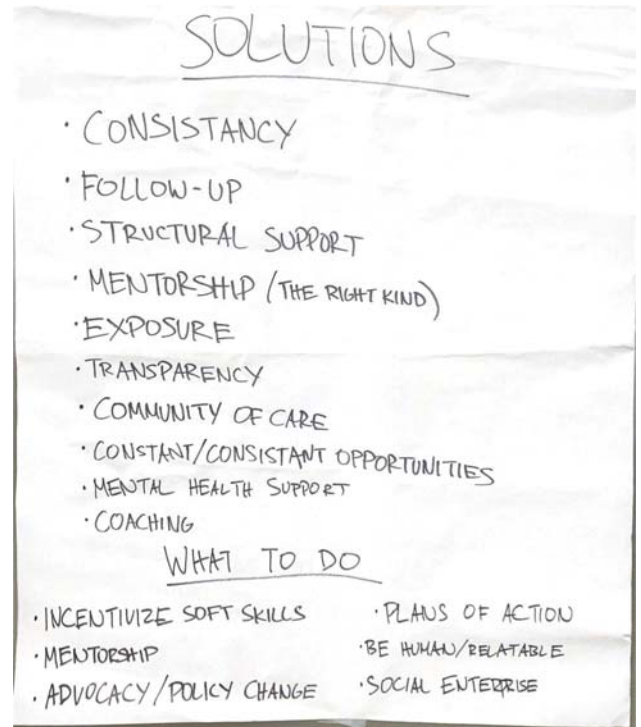 SOLUTIONS
· CONSISTANCY
· FOLLOW-UP
· STRUCTURAL SUPPORT
· MENTORSHIP (THE RIGHT KIND)
· EXPOSURE
· TRANSPARENCY
· COMMUNITY OF CARE
· CONSTANT/CONSISTANT OPPORTUNITIES
· MENTAL HEALTH SUPPORT
· COACHING
WHAT TO DO
· INCENTIVIZE SOFT SKILLS
· MENTORSHIP
· ADVOCACY/POLICY CHANGE
· PLANS OF ACTION
· BE HUMAN/RELATABLE
· SOCIAL ENTERPRISE